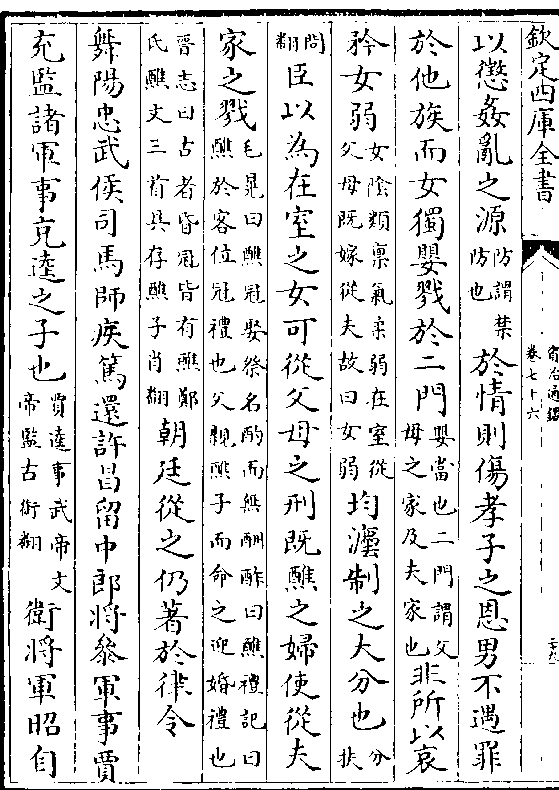 欽定四庫全書
資治通鑑
卷七十六
二十九
以懲姦亂之源防謂禁防也於情則傷孝子之恩男不遇罪
於他族而女獨嬰戮於二門嬰當也二門謂父母之家及夫家也非所以哀
矜女弱女陰類禀氣柔弱在室從父母既嫁從夫故曰女弱均灋制之大分也分扶
問翻臣以為在室之女可從父母之刑既醮之婦使從夫
家之戮毛晃曰醮冠娶祭名酌而無酬酢曰醮禮記曰醮於客位冠禮也父親醮子而命之迎婚禮也
晉志曰古者昏冠皆有醮鄭氏醮文三首具存醮子肖翻朝廷從之仍著於律令
舞陽忠武侯司馬師疾篤還許昌留中郎將參軍事賈
充監諸軍事充逵之子也賈逵事武帝文帝監古銜翻衛將軍昭自